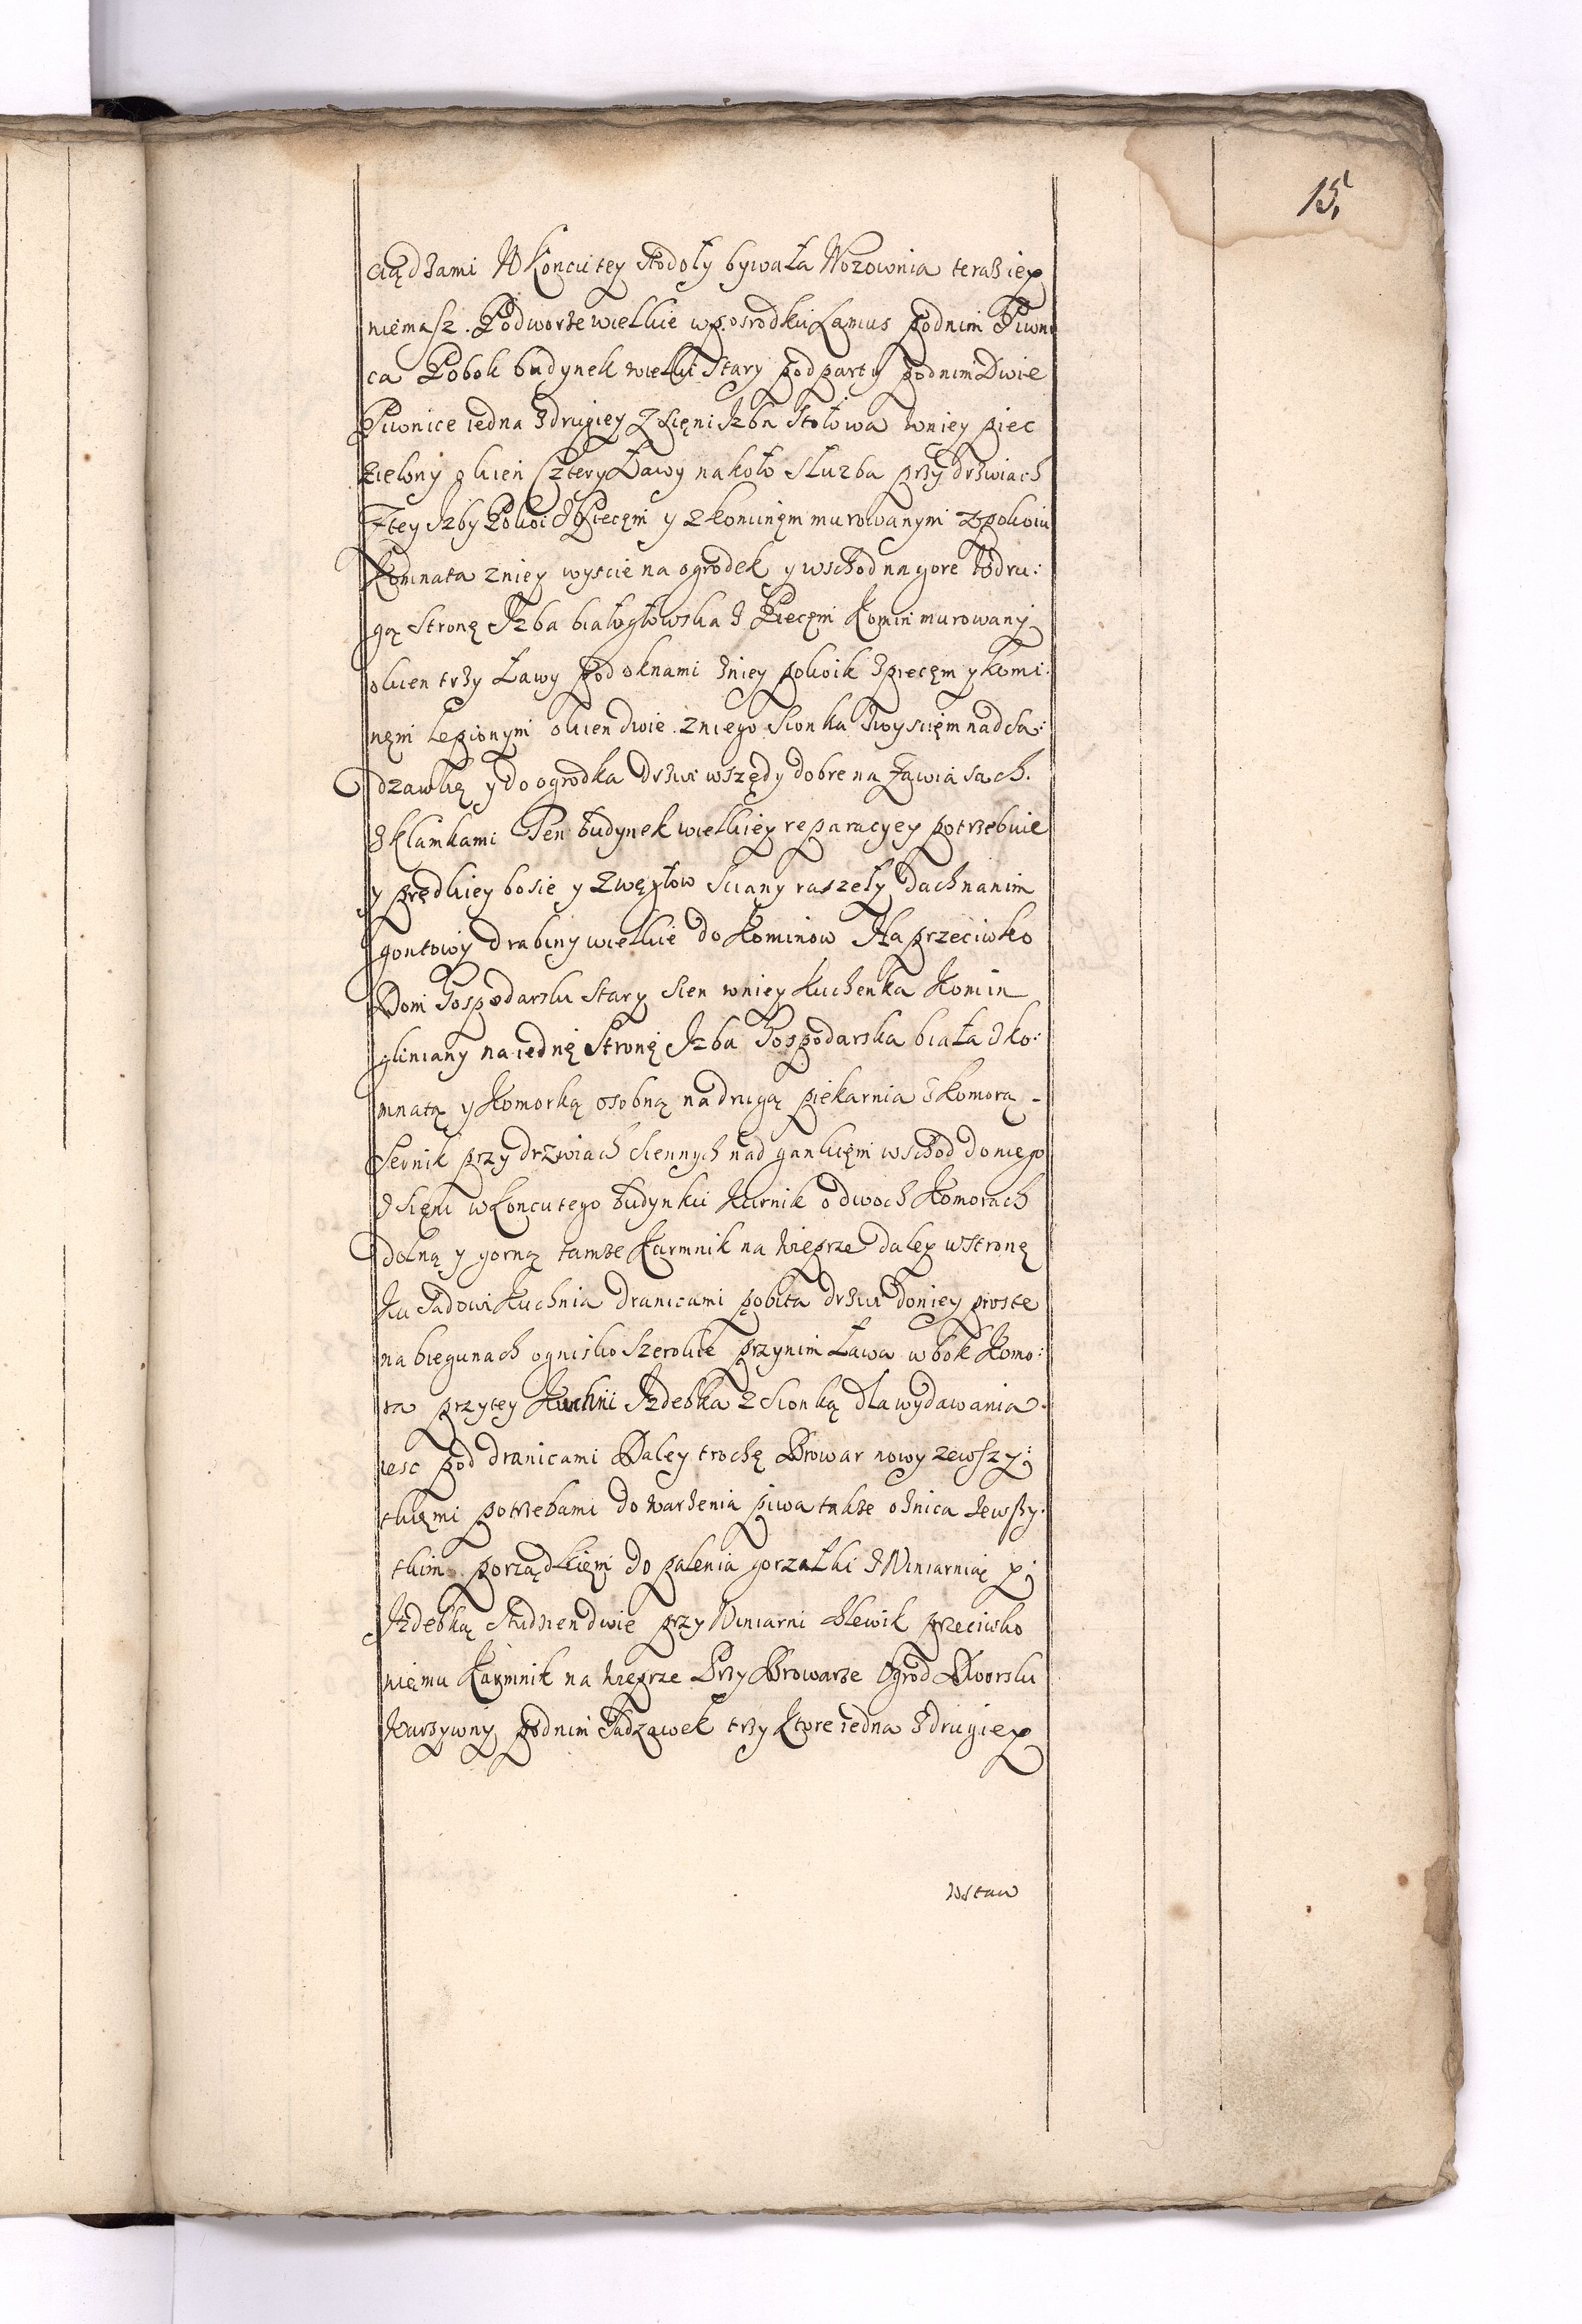 15.
ciądzami W Koncu tey Stodoły bywała Wozownia teraz iey
niemasz. Podworze wielkie w posrodku Lamus pod nim Piwni
ca Pobok budynek wielki Stary podparty pod nim Dwie
Piwnice iedna z drugiey z sieni Izba Stołowa w niey piec
zielony okien cztery Ławy na koło Służba przy drzwiach
Z tey Izby Pokoi z Piecęm y z kominęm murowanym z pokoiu
Komnata z niey wyscie na ogrodek y wschod na gore w dru:
gą Stronę Izba białogłowska z Piecęm Komin murowany
okien trzy Ławy pod oknami z niey pokoik z piecęm y komi:
nęm lepionym okien dwie z niego Sionka z wyscięm nad Sa:
dzawkę y do ogrodka drzwi wszędy dobre na zawiasach.
z klamkami Ten budynek wielkiey reparacyey potrzebuie
y prędkiey bo sie y z węgłow Sciany ruszeły dach na nim
gontowy drabiny wielkie do Kominow Na przeciwko
Dom Gospodarski Stary Sien w niey Kuchenka Komin
gliniany na iednę Stronę Izba Gospodarska biała z ko:
mnatą y Komorką osobną na drugą piekarnia z Komorą -
Sernik przy drzwiach siennych nad gankięm wschod do niego
z sieni w koncu tego budynku Kurnik o dwoch Komorach
dolną y gorną tamże Karmnik na wieprze daley w stronę
ku Sadowi Kuchnia dranicami pobita drzwi do niey proste
na biegunach ognisko szerokie przy nim Ława w bok Komo:
ra przy tey Kuchni Izdebka z Sionką dla wydawania
iesc pod dranicami Daley trochę Browar nowy ze wszy:
tkięmi potrzebami do warzenia piwa także oznica ze wszy:
tkim porządkięm do palenia gorzałki z Winiarnią y
Izdebką Studzien dwie przy Winiarni Chlewik przeciwko
niemu Karmnik na wieprze Przy Browarze Ogrod Dworski
Warzywny pod nim Sadzawek trzy ktore iedna z drugiey
w staw